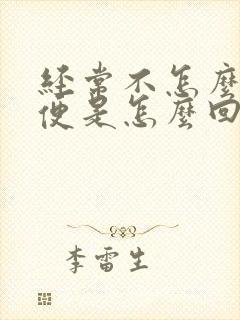 經常不怎麼
便是怎麼回
李雷生